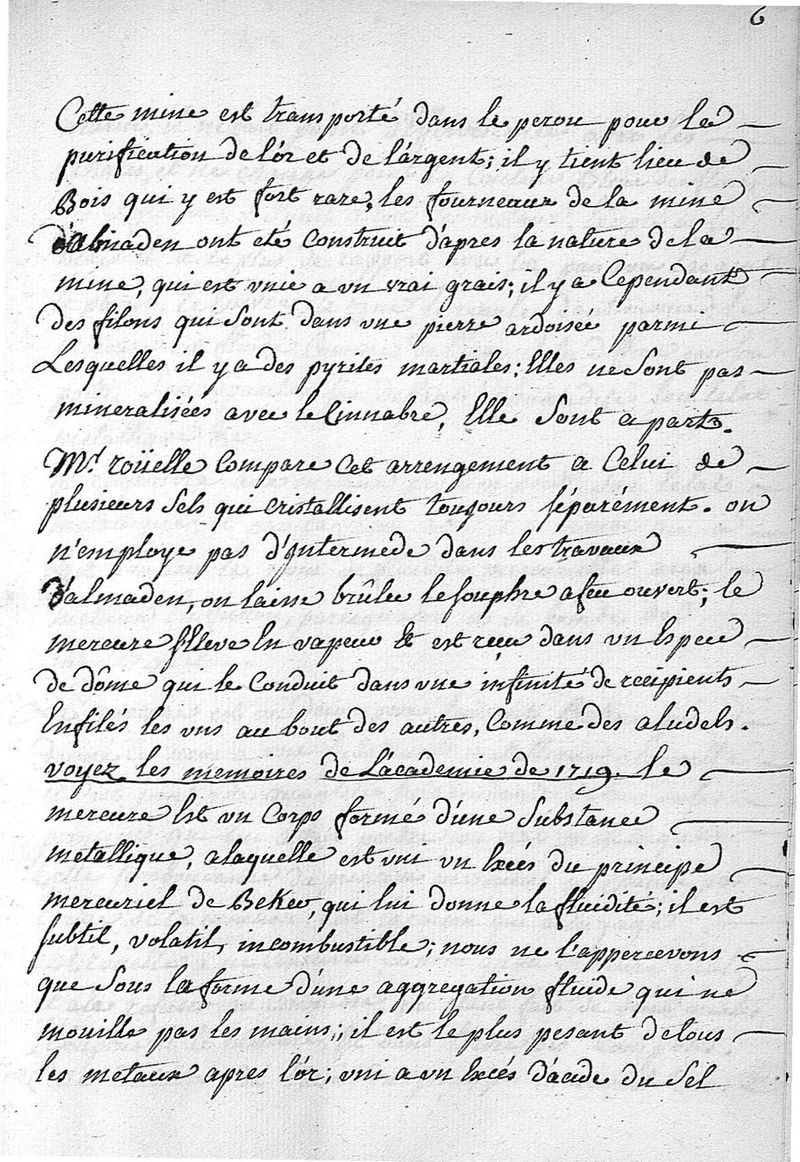 6
Cette mine est transporté dans le perou pour la
purification de lór et de lárgent; il y tient lieu de
Bois qui y est fort rare, les fourneaux de la mine
d'almaden ont eté Construit d'apres la nature de la
mine, qui est unie a un vrai grais; il y a Cependant
des filons qui sont dans une pierre ardoisée parmi
Lesquelles il y a des pyrites martiales; Elles ne sont pas
mineralisées avec le Cinnabre, Elle sont a part.
Mr. roüelle Compare Cet arrengement a Celui de
plusieurs sels qui cristallisent toujours séparément. on
n'employe pas d'Intermede dans les travaux
d'almaden, on laisse brûler le souphre a feu ouvert; le
mercure s'Eleve En vapeur Et est reçu dans un Espece
de dôme qui le Conduit dans une infinité de recipients
Enfilés les uns au bout des autres, Comme des aludels.
voyez les memoires de L'academie de 1719. le
mercure Est un Corps formé d'une Substance
metallique, a laquelle est uni un Excés du principe
mercuriel de Beker, qui lui donne la fluidité; il est
subtil, volatil, incombustible; nous ne l'appercevons
que sous la forme d'une aggregation fluide qui ne
mouille pas les mains; il est le plus pesant de tous
les metaux apres lór; uni a un Excés d'acide du Sel